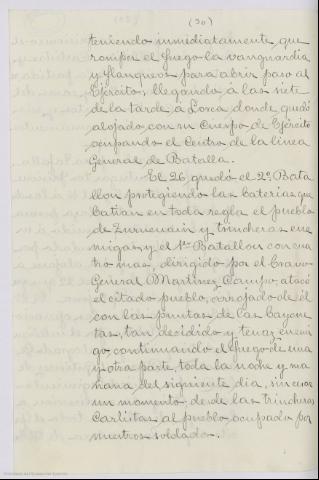 (30)
teniendo inmediatamente que
romper el fuego la vanguardia
y flanqueos para abrir paso al
Ejército, llegando, á las siete
de la tarde, á Lorca, donde quedó
alojado con su Cuerpo de Ejército
ocupando el centro de la línea
General de Batalla.
El 26, quedó el 2º Bata
llon protegiendo las baterias que
batian en toda regla el pueblo
de Zurucuain y trincheras ene
migas, y el 1er Batallon con cua
tro mas, dirigido por el bravo
General Martinez Campo, atacó
el citado pueblo, arrojado de él
con las puntas de las bayone
tas, tan decidido y tenaz enemi
go, continuando el fuego de una
y otra parte, toda la noche y ma
ñana del siguiente dia, sin cesar
un momento, desde las trincheras
Carlistas al pueblo ocupado por
nuestros soldados.